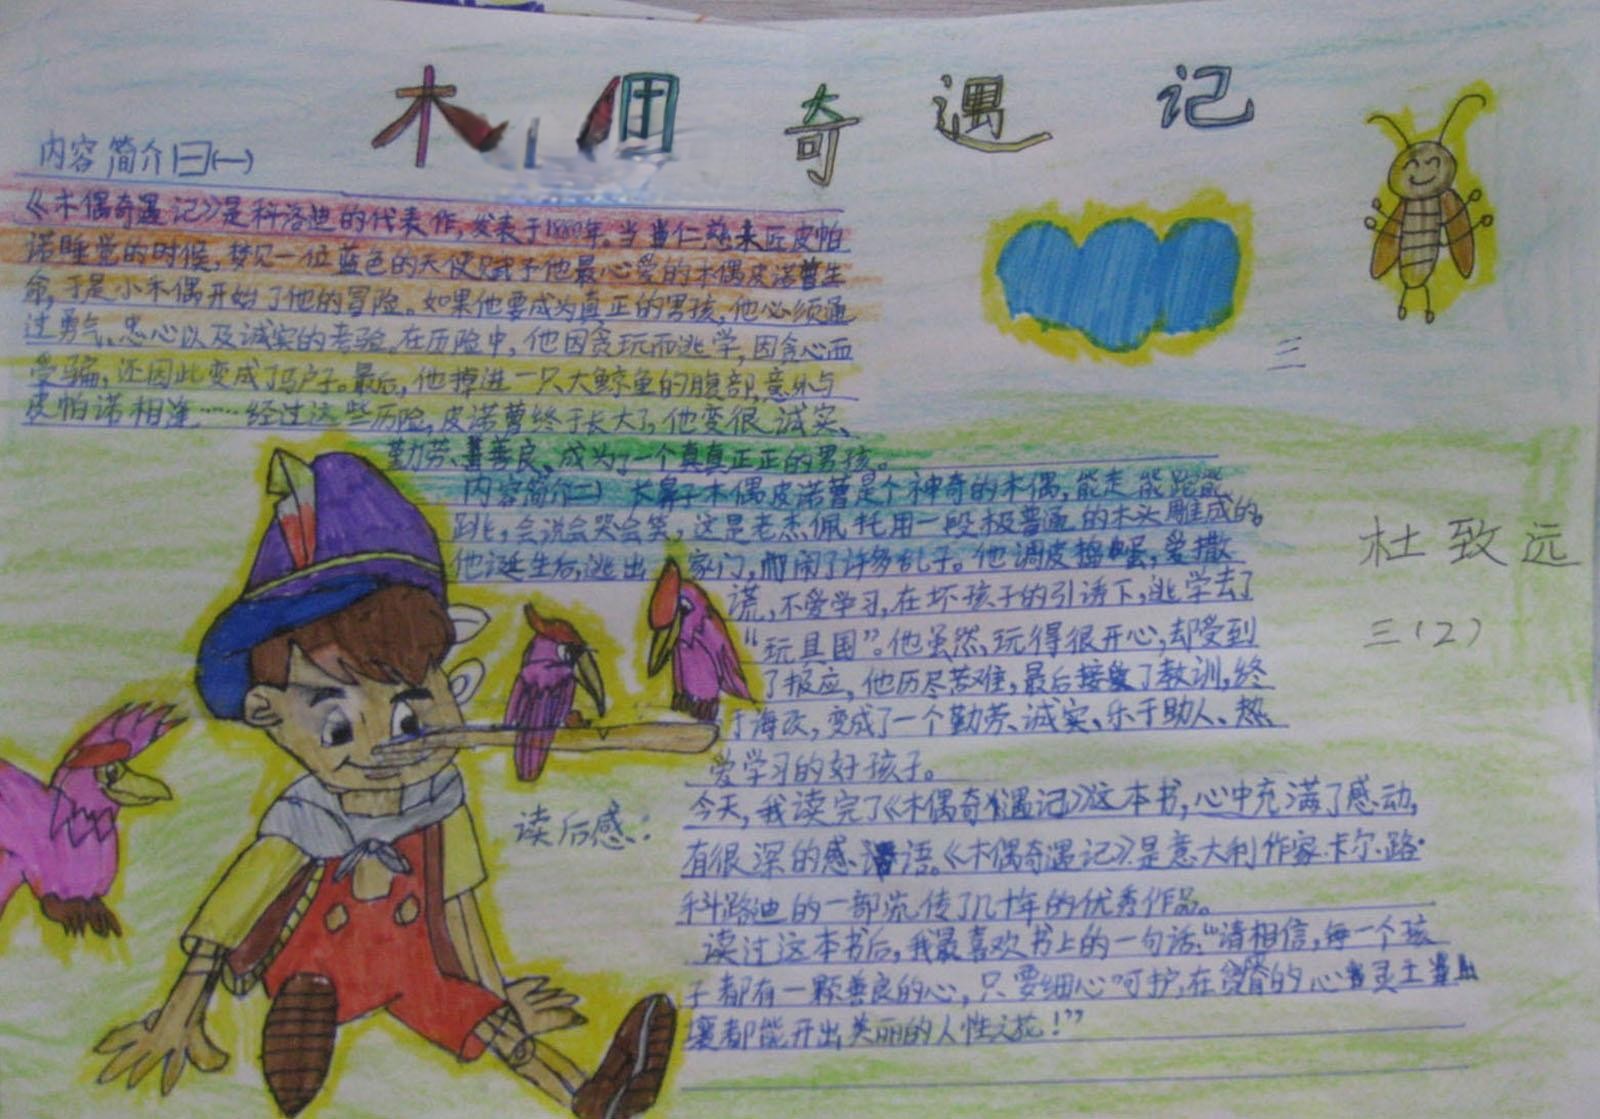 木偶奇遇记
内容简介(一)
《木偶奇遇记》是科洛迪的代表作,发表于1880年。当仁慈木匠皮帕
诺睡觉的时候,梦见一位蓝色的天使赋予他最心爱的木偶皮诺曹生
命,于是小木偶开始了他的冒险。如果他要成为真正的男孩,他必须通
过勇气、忠心以及诚实的考验。在历险中,他因贪玩而逃学,因贪心而
受骗,还因此变成了驴子。最后,他掉进一只大鲸鱼的腹部,意外与
皮帕诺相逢……经过这些历险,皮诺曹终于长大了,他变很诚实、
勤劳、善良,成为了一个真真正正的男孩。
内容简介(二) 长鼻子木偶皮诺曹是个神奇的木偶,能走能跑能
跳,会说会哭会笑,这是老杰佩托用一段极普通的木头雕成的。
他诞生后,逃出家门,闹了许多乱子。他调皮捣蛋,爱撒
谎,不爱学习,在坏孩子的引诱下,逃学去了
“玩具国”。他虽然玩得很开心,却受到
了报应,他历尽苦难,最后接受了教训,终
于海改,变成了一个勤劳、诚实、乐于助人、热
爱学习的好孩子。
读后感:
今天,我读完了《木偶奇遇记》这本书,心中充满了感动,
有很深的感语。《木偶奇遇记》是意大利作家卡尔·路·
科路迪的一部流传了几十年的优秀作品。
读过这本书后,我最喜欢书上的一句话:“请相信,每一个孩
子都有一颗善良的心,只要细心呵护,在的心灵土
壤都能开出美丽的人性之花!”
三
杜致远
三(2)